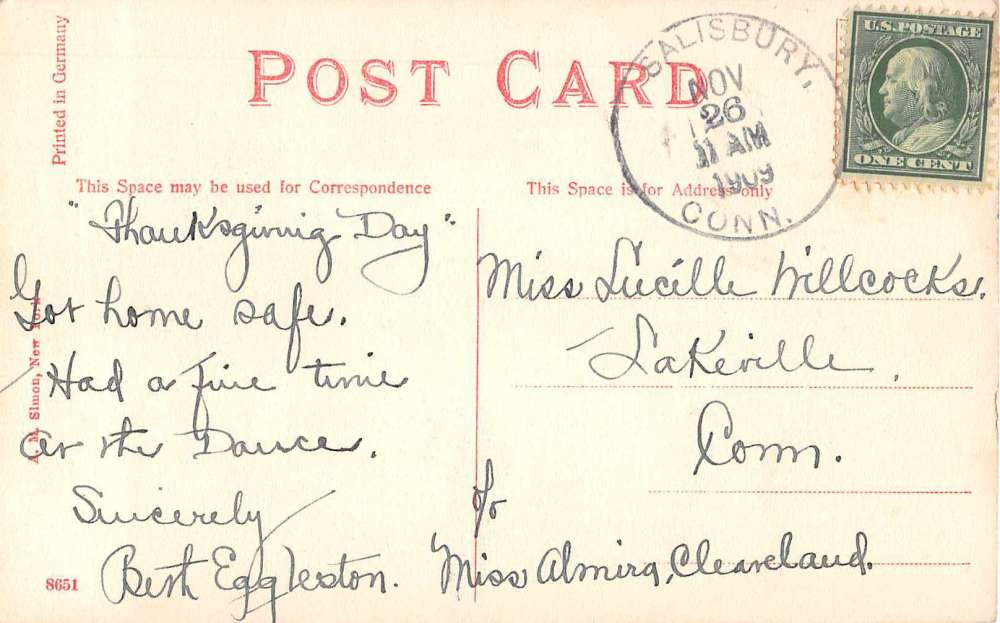 Printed in Germany
POST CARD
SALISBURY,
NOV
26
11 AM
1909
CONN.
U.S. POSTAGE
ONE CENT
This Space may be used for Correspondence
This Space is for Address only
"Thanksgiving Day"
Got home safe.
Had a fine time
at the Dance.
Sincerely
Bert Eggleston.
A. M. Simon, New York
8651
Miss Lucille Willcocks.
Lakeville,
Conn.
c/o
Miss Almira Cleaveland.